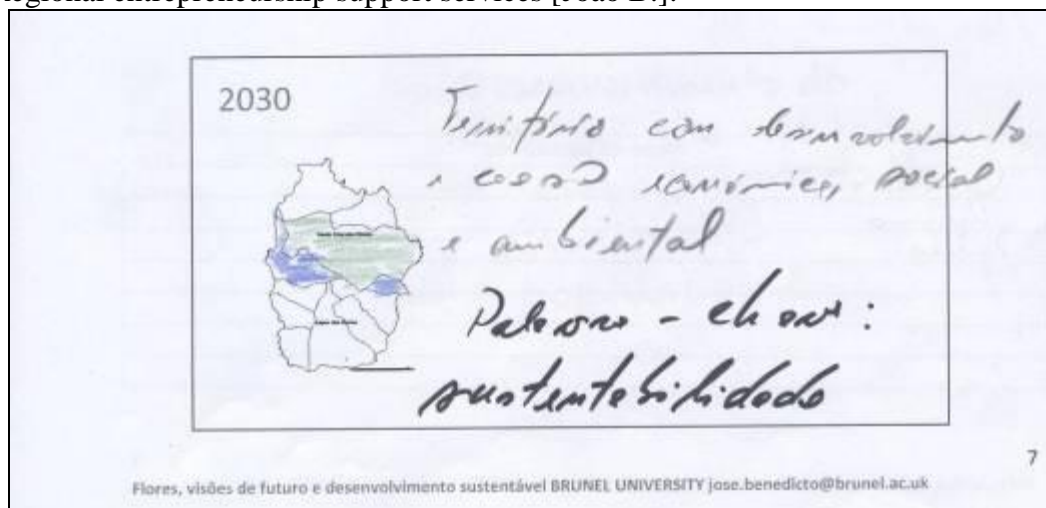 regional entrepreneurship support services [João B.].
2030
Território com desenvolvimento
e coesão económica, social
e ambiental
Palavra-chave:
sustentabilidade
7
Flores, visões de futuro e desenvolvimento sustentável BRUNEL UNIVERSITY jose.benedicto@brunel.ac.uk